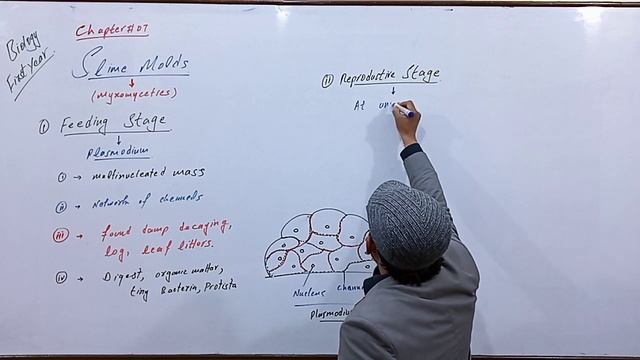 Biology
First year.
Chapter#07
Slime Molds
(Myxomycetes)
(i) Feeding Stage
Plasmodium
(i) → multinucleated mass
(ii) → Network of channels
(iii) → found damp decaying,
log, leaf littors.
(iv) → Digest, organic mattor,
ting Bacteria, Protista
(ii) Reproductive Stage
At
Nucleus